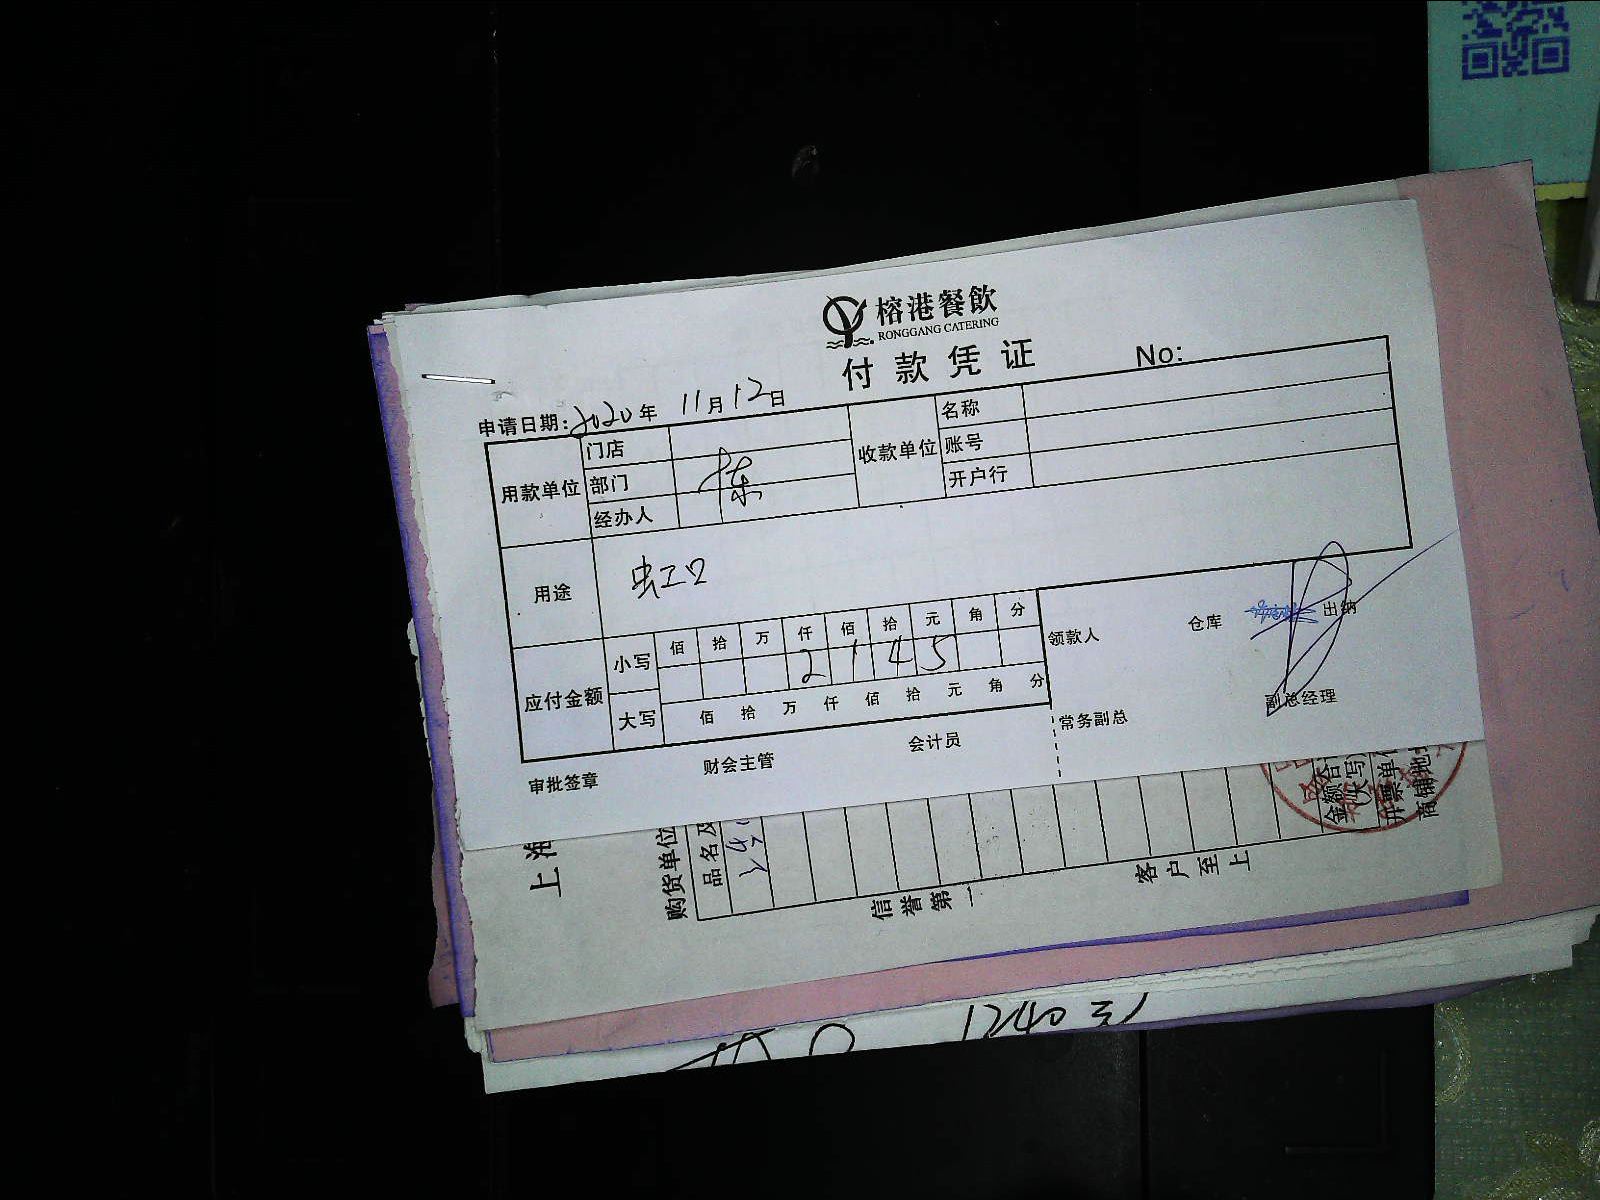 榕港餐飲
RONGGANG CATERING
付款凭证
No:
申请日期: 2020年 11月12日
用款单位 门店 收款单位 名称
部门 栋 账号
经办人 开户行
用途 虹口
应付金额 小写 佰 拾 万 仟 佰 拾 元 角 分
2 1 4 5
大写 佰 拾 万 仟 佰 拾 元 角 分
领款人 仓库 出纳
常务副总 副总经理
审批签章 财会主管 会计员
上海
购货单位
品名及
金额合
(大写)
开票单位
商铺地
信誉第一
客户至上
1240